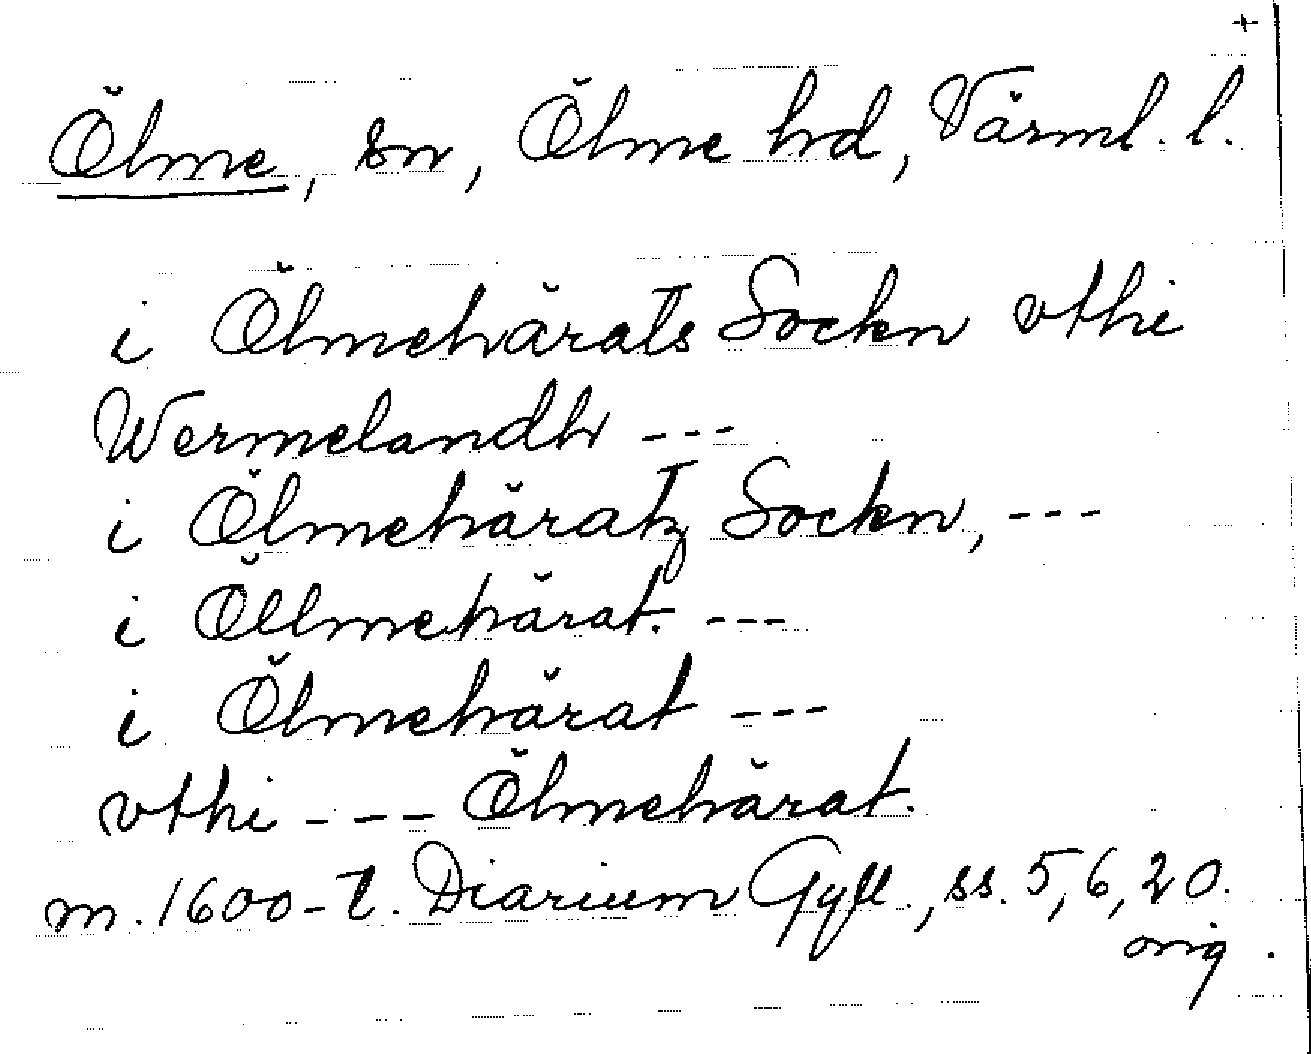 +
Ölme, sn, Ölme hd, Värml. l.
i Ölmehärats Sockn vthi
Wermelandh ---
i Ölmehäratz Sockn, ---
i Öllmehärat. ---
i Ölmehärat ---
vthi --- Ölmehärat.
m. 1600-t. Diarium Gyll., ss. 5, 6, 20.
orig.